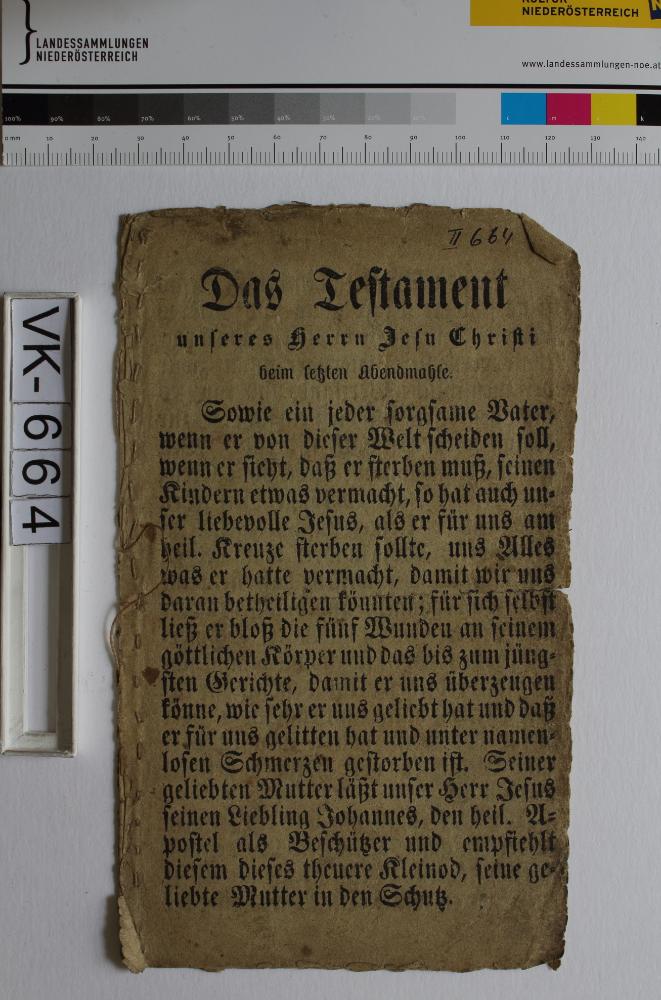 KULTUR
NIEDERÖSTERREICH
LANDESSAMMLUNGEN
NIEDERÖSTERREICH
www.landessammlungen-noe.at
100% 90% 80% 70% 60% 50% 40% 30% 20% 10% c m y k
0 mm 10 20 30 40 50 60 70 80 90 100 110 120 130 140
VK-664
II 664
Das Testament
unseres Herrn Jesu Christi
beim letzten Abendmahle.
Sowie ein jeder sorgsame Vater,
wenn er von dieser Welt scheiden soll,
wenn er sieht, daß er sterben muß, seinen
Kindern etwas vermacht, so hat auch un-
ser liebevolle Jesus, als er für uns am
heil. Kreuze sterben sollte, uns Alles
was er hatte vermacht, damit wir uns
daran betheiligen könnten; für sich selbst
ließ er bloß die fünf Wunden an seinem
göttlichen Körper und das bis zum jüng-
sten Gerichte, damit er uns überzeugen
könne, wie sehr er uns geliebt hat und daß
er für uns gelitten hat und unter namen-
losen Schmerzen gestorben ist. Seiner
geliebten Mutter läßt unser Herr Jesus
seinen Liebling Johannes, den heil. A-
postel als Beschützer und empfiehlt
diesem dieses theuere Kleinod, seine ge-
liebte Mutter in den Schutz.